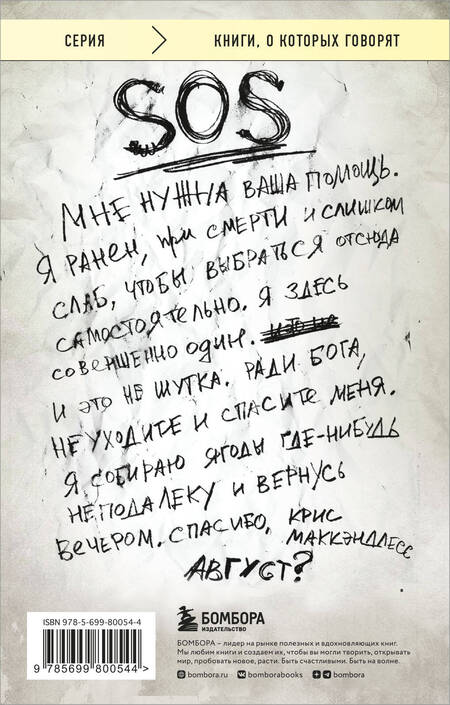 СЕРИЯ > КНИГИ, О КОТОРЫХ ГОВОРЯТ
SOS
МНЕ НУЖНА ВАША ПОМОЩЬ.
Я РАНЕН, при СМЕРТИ И СЛИШКОМ
СЛАБ, ЧТОБЫ ВЫБРАТЬСЯ ОТСЮДА
САМОСТОЯТЕЛЬНО. Я ЗДЕСЬ
СОВЕРШЕННО ОДИН.
И ЭТО НЕ ШУТКА. РАДИ БОГА,
НЕ УХОДИТЕ И СПАСИТЕ МЕНЯ.
Я СОБИРАЮ ЯГОДЫ ГДЕ-НИБУДЬ
НЕПОДАЛЕКУ И ВЕРНУСЬ
ВЕЧЕРОМ. СПАСИБО, КРИС
МАККЭНДЛЕСС
АВГУСТ?
ISBN 978-5-699-80054-4
9 785699 800544 >
БОМБОРА
ИЗДАТЕЛЬСТВО
БОМБОРА – лидер на рынке полезных и вдохновляющих книг.
Мы любим книги и создаем их, чтобы вы могли творить, открывать
мир, пробовать новое, расти. Быть счастливыми. Быть на волне.
bombora.ru bomborabooks bombora